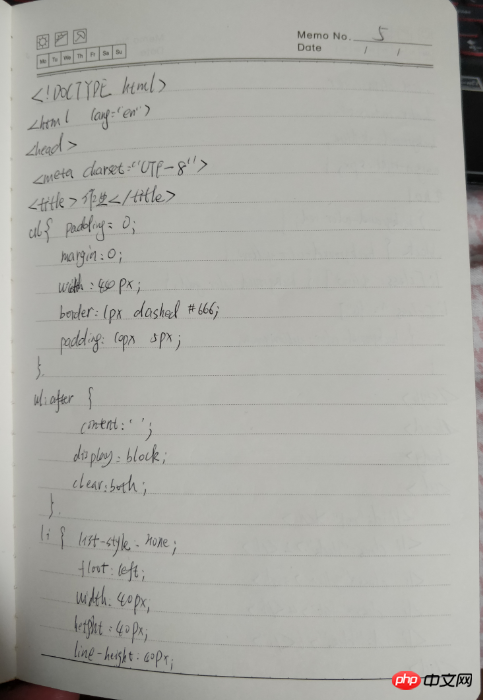 Memo No. 5
Mo Tu We Th Fr Sa Su
Date / /
<!DOCTYPE html>
<html lang="en">
<head>
<meta charset="UTF-8">
<title>作业</title>
ul{ padding: 0;
margin: 0;
width: 440px;
border: 1px dashed #666;
padding: 10px 5px;
}
ul:after {
content: ' ';
display: block;
clear: both;
}
li { list-style: none;
float: left;
width: 40px;
height: 40px;
line-height: 40px;
php中文网